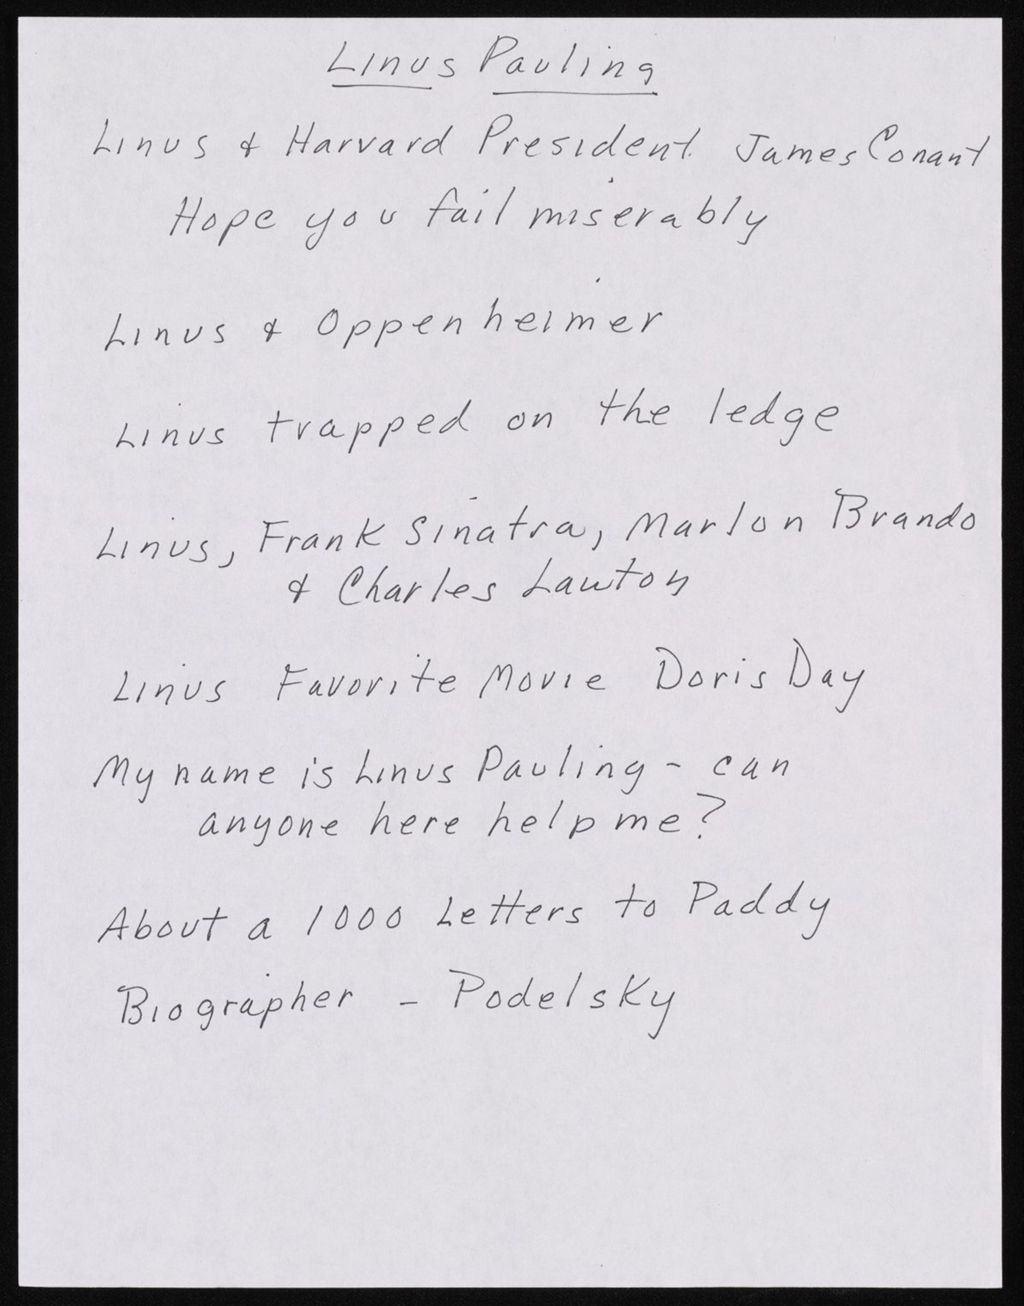 Linus Pauling
Linus & Harvard President James Conant
Hope you fail miserably
Linus & Oppenheimer
Linus trapped on the ledge
Linus, Frank Sinatra, Marlon Brando
& Charles Lawton
Linus Favorite Movie Doris Day
My name is Linus Pauling - can
anyone here help me?
About a 1000 Letters to Paddy
Biographer - Podelsky